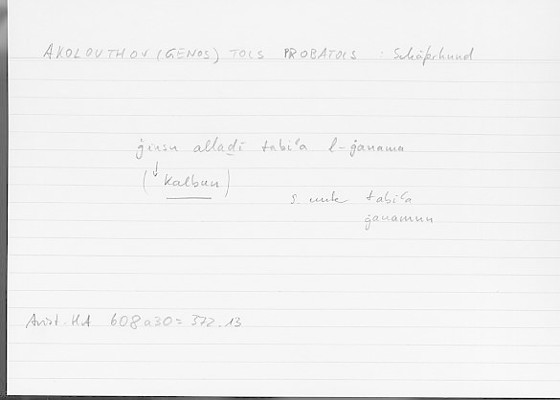 AKOLOUTHOU (GENOS) TOIS PROBATOIS : Schäferhund
ǧinsu allaḏī tabiʿa l-ġanama
(↓ Kalbun)
s. unter tabiʿa
ġanamun
Arist. HA 608a30 = 372.13